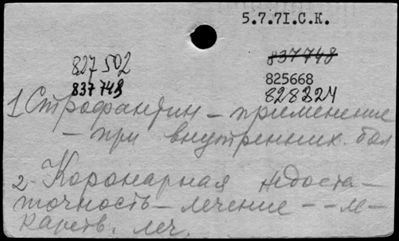 5.7.71.С.К.
827502
837748
837748
825668
828324
1 Строфантин – применение
– при внутренник. бол
2 Коронарная недоста–
точность – лечение – – ле–
карств. леч.